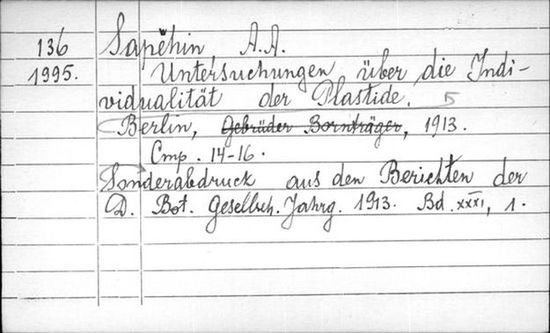 136 Sapěhin, A.A.
1995. Untersuchungen über die Indi-
vidualität der Plastide.
Berlin, Gebrüder Bornträger, 1913.
Стр. 14-16.
Sonderabdruck aus den Berichten der
D. Bot. Gesellsch. Jahrg. 1913. Bd. XXXI, 1.